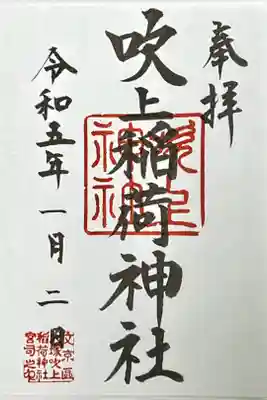 奉拝
吹上稲荷神社
令和五年一月二日
文京區
大塚吹上
稲荷神社
宮司之印